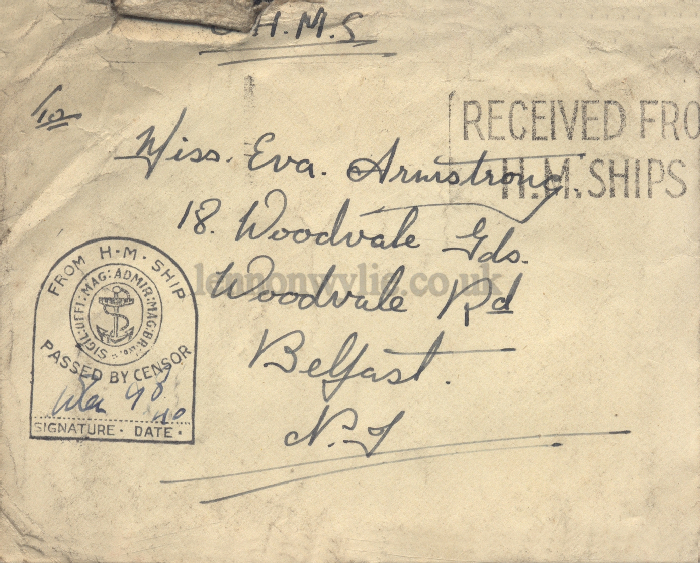 O.H.M.S
To
RECEIVED FRO
H.M. SHIPS
Miss. Eva. Armstrong
18. Woodvale Gds.
Woodvale Rd
Belfast.
N.I
lennonwylie.co.uk
FROM H·M·SHIP
SIGIL:OFFI:MAG:ADMIR:MAG:BR:
PASSED BY CENSOR
SIGNATURE · DATE ·